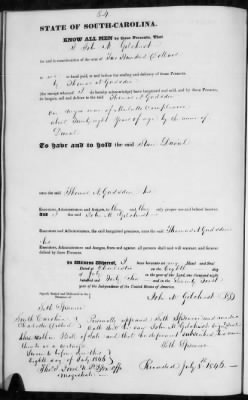 STATE OF SOUTH-CAROLINA.
KNOW ALL MEN by these Presents, That
I John M. Gilchrist
for and in consideration of the sum of Two Hundred Dollars
to me in hand paid, at and before the sealing and delivery of these Presents,
by Thomas N Gadsden
(the receipt whereof I do hereby acknowledge) have bargained and sold, and by these Presents,
do bargain, sell and deliver to the said Thomas N Gadsden
One Negro man of Mulatto Complexion
about Twenty eight years of age by the name of
David
To have and to hold the said Slave David
unto the said Thomas N Gadsden his
Executors, Administrators and Assigns, to and their only proper use and behoof forever.
AND I the said John M. Gilchrist
Executors, Administrators, the said bargained premises, unto the said Thomas N Gadsden
his
Executors, Administrators and Assigns, from and against all persons shall and will warrant and forever
defend by these Presents.
In Witness Whereof, I have hereunto set my Hand and Seal
Dated at Charleston on the Eighth day
of July in the year of our Lord, one thousand eight
hundred and forty and in the Seventy
year of the Independence of the United States of America.
Signed, Sealed and Delivered in the Presence of
John M Gilchrist
Seth Spencer
South Carolina Personally appeared Seth Spencer and made
Oath that he saw John M Gilchrist
Bill of Sale and that he deponent subscribed his name
thereto as a witness
Seth Spencer
Sworn to before me this
Eighth day of July 1845
Magistrate Recorded July 8th 1845